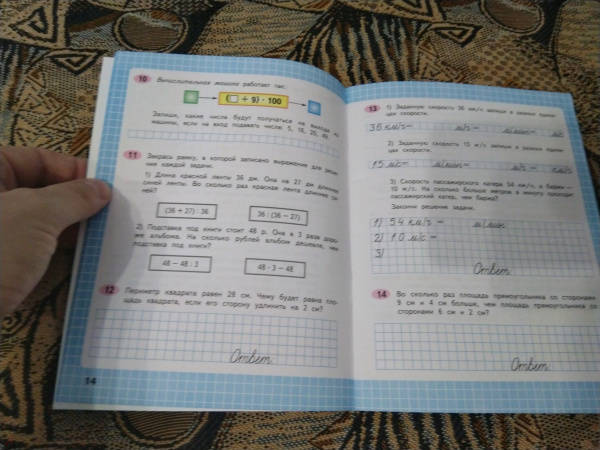 10 Вычислительная машина работает так:
(□ + 9) · 100
Запиши, какие числа будут получаться на выходе из
машины, если на вход подавать числа: 5, 16,
11 Закрась рамку, в которой записано выражение для реше-
ния каждой задачи.
1) Длина красной ленты 36 дм. Она на 27 дм длиннее
синей ленты. Во сколько раз красная лента длиннее си-
ней?
(36 + 27) : 36
36 : (36 − 27)
2) Подставка под книги стоит 48 р. Она в 3 раза доро-
же альбома. На сколько рублей альбом дешевле, чем
подставка под книги?
48 − 48 : 3
48 · 3 − 48
12 Периметр квадрата равен 28 см. Чему будет равна пло-
щадь квадрата, если его сторону удлинить на 2 см?
Ответ:
14
13 1) Заданную скорость 36 км/ч запиши в разных едини-
цах скорости.
36 км/ч= м/ч= м/мин= м/с
2) Заданную скорость 15 м/с запиши в разных едини-
цах скорости.
15 м/с= м/мин= м/ч= км/ч
3) Скорость пассажирского катера 54 км/ч, а баржи —
10 м/с. На сколько больше метров в минуту проходит
пассажирский катер, чем баржа?
Закончи решение задачи.
1) 54 км/ч = м/мин
2) 10 м/с =
3)
Ответ:
14 Во сколько раз площадь прямоугольника со сторонами
9 см и 4 см больше, чем площадь прямоугольника со
сторонами 6 см и 2 см?
Ответ: